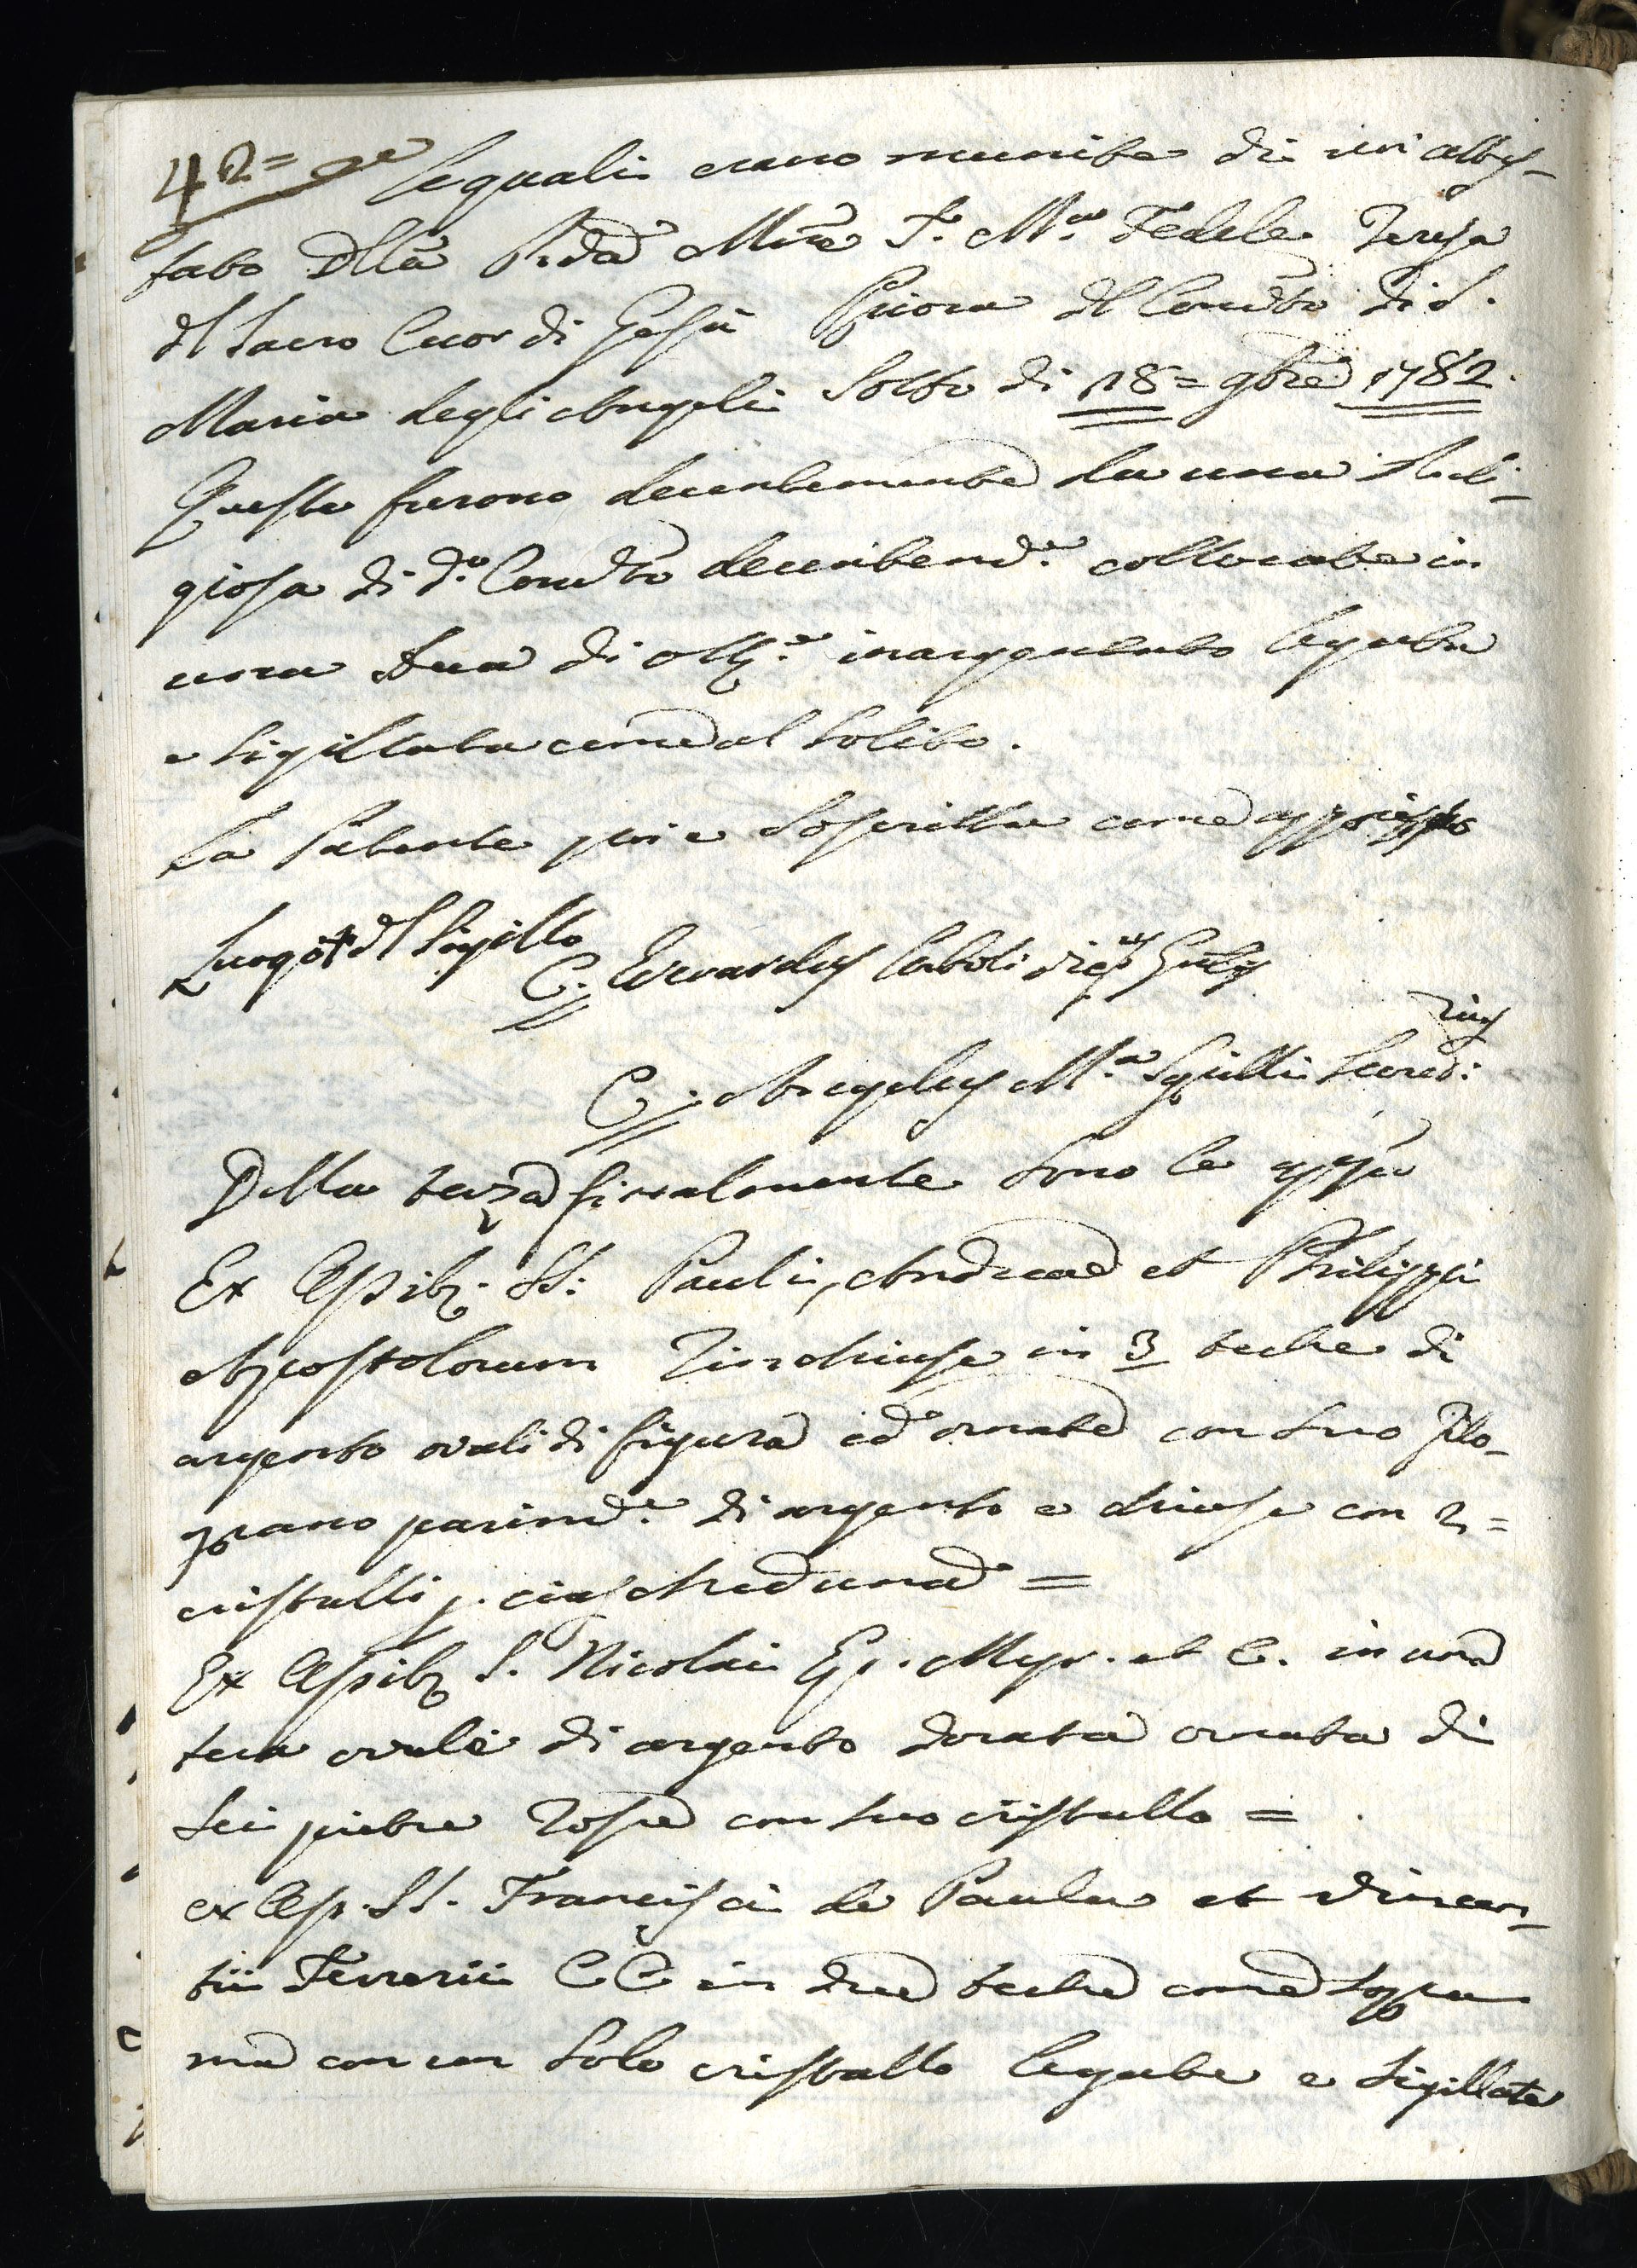 42= 
le quali erano munite di un attes-
tato dlla R.da Mre S.r M.a Fedele Teresa
dl Sacro Cuor di Gesù Priora dl Conv.to di S.
Maria degli Angeli Sotto di 18= 9bre 1782.
Queste furono decentemente da una Reli-
giosa di d.o Conv.to decentem.e collocate in
una Teca di Met.o inargentato legata
e Sigillata come al Solito.
La Patente poi e Soscritta come appresso
Luogo † dl Sigillo
C. Everardus Caboli Gnlis
C. Angelus M.a Squilli Secret:rius
Della terza finalmente sono le app.e
Ex Ossibs. SS: Pauli, Andreae et Philippi
Apostolorum Rinchiuse in 3 teche di
argento ovali di figura ed ornate con suo filo-
grano parim.e di argento e chiuse con 2=
cristalli p. ciascheduna =
Ex Ossibs S. Nicolai Ep. Myr. et C. in una
teca ovale di argento dorata ornata di
sei pietre rosse con suo cristallo =
ex Oss. SS. Francisci de Paula et Vincen-
tii Ferrerii CC in due teche come sopra
ma con un solo cristallo legate e Sigillate